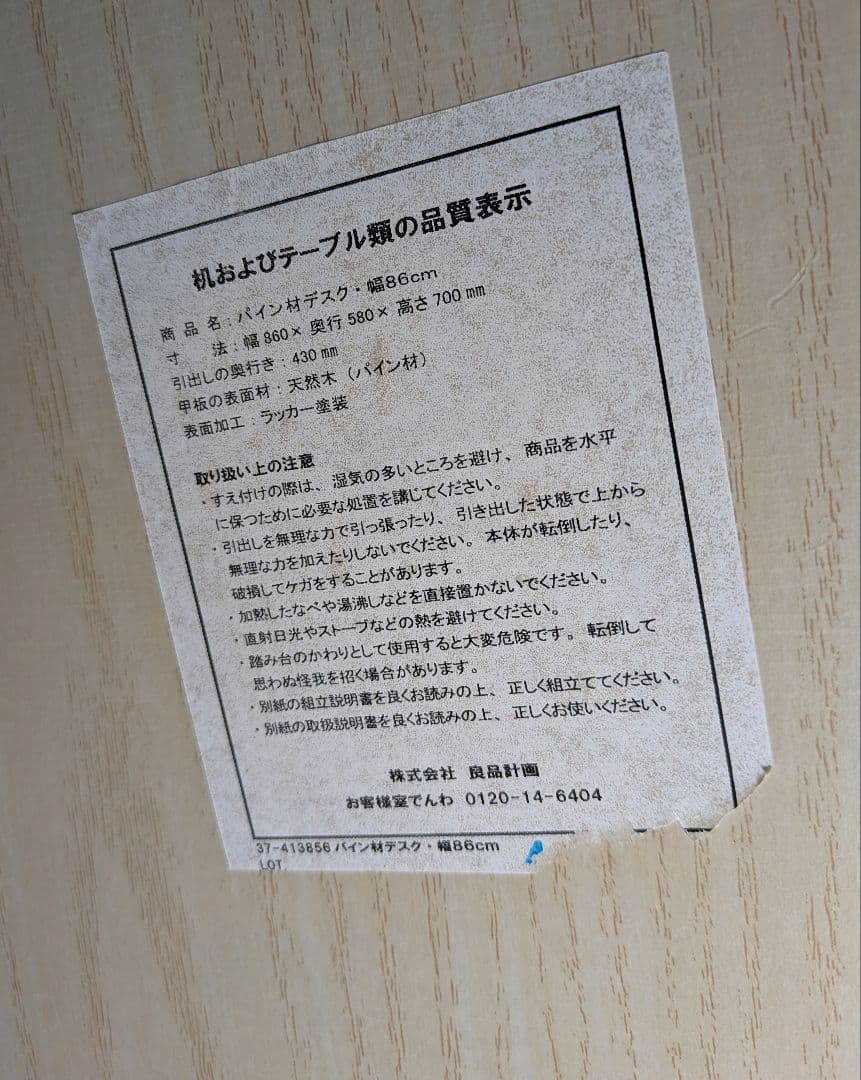 机およびテーブル類の品質表示
商品名：パイン材デスク・幅86cm
寸法：幅860×奥行580×高さ700㎜
引出しの奥行き：430㎜
甲板の表面材：天然木（パイン材）
表面加工：ラッカー塗装
取り扱い上の注意
・すえ付けの際は、湿気の多いところを避け、商品を水平
に保つために必要な処置を講じてください。
・引出しを無理な力で引っ張ったり、引き出した状態で上から
無理な力を加えたりしないでください。本体が転倒したり、
破損してケガをすることがあります。
・加熱したなべや湯沸しなどを直接置かないでください。
・直射日光やストーブなどの熱を避けてください。
・踏み台のかわりとして使用すると大変危険です。転倒して
思わぬ怪我を招く場合があります。
・別紙の組立説明書を良くお読みの上、正しく組立ててください。
・別紙の取扱説明書を良くお読みの上、正しくお使いください。
株式会社 良品計画
お客様室でんわ 0120-14-6404
37-413856 パイン材デスク・幅86cm
LOT